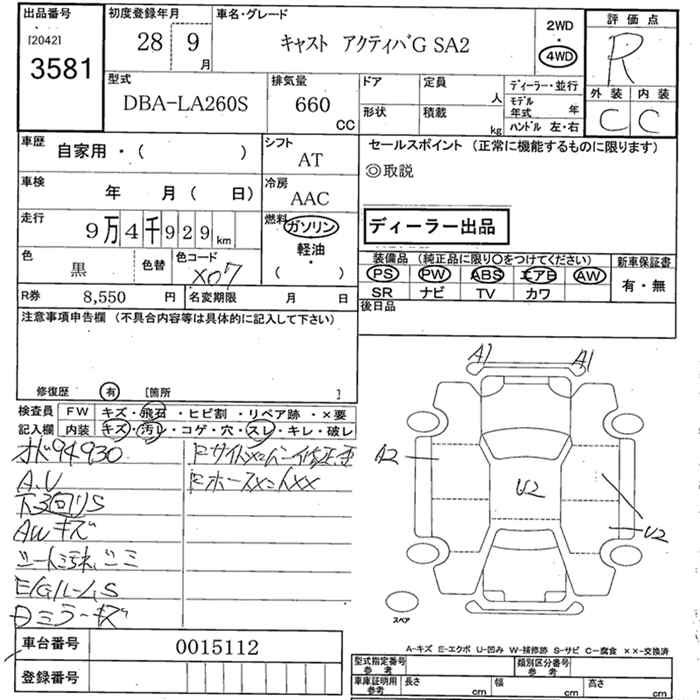 出品番号
[2042]
3581
初度登録年月
28 9
月
車名・グレード
キャスト アクティバG SA2
2WD
4WD
評価点
R
外装 内装
C C
型式
DBA-LA260S
排気量
660
CC
ドア 定員
人
形状 積載
kg
ディーラー・並行
モデル年式 年
ハンドル 左・右
車歴
自家用・( )
シフト
AT
セールスポイント (正常に機能するものに限ります)
◎取説
車検
年 月( 日)
冷房
AAC
走行
9万4千929km
燃料
ガソリン
軽油
( ・ )
ディーラー出品
色
黒
色替
色コード
X07
装備品 (純正品に限り○をつけてください)
PS PW ABS エアB AW
SR ナビ TV カワ
新車保証書
有・無
R券 8,550 円 名変期限 月 日
後日品
注意事項申告欄 (不具合内容等は具体的に記入して下さい)
修復歴 有 [箇所 ]
検査員記入欄
FW キズ・飛石・ヒビ割・リペア跡・×要
内装 キズ・汚レ・コゲ・穴・スレ・キレ・破レ
オド94930
A.U
下回りS
AWキズ
シート汚れ、シミ
E/Gルーム S
Dミラーキズ
A1 A1
A2
U2
U2
スペア
A-キズ E-エクボ U-凹み W-補修跡 S-サビ C-腐食 ××-交換済
車台番号 0015112
登録番号
型式指定番号 参考
類別区分番号 参考
車庫証明用 参考
長さ cm 幅 cm 高さ cm